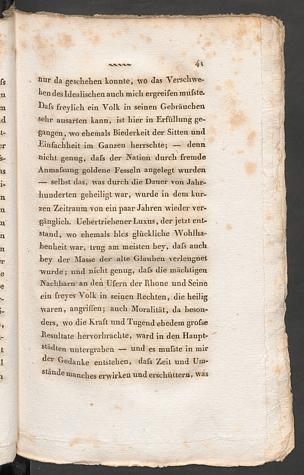 41
nur da geschehen konnte, wo das Verschwe-
ben des Idealischen auch mich ergreifen mußte.
Daß freylich ein Volk in seinen Gebräuchen
sehr ausarten kann, ist hier in Erfüllung ge-
gangen, wo ehemals Biederkeit der Sitten und
Einfachheit im Ganzen herrschte; — denn
nicht genug, daß der Nation durch fremde
Anmasung goldene Fesseln angelegt wurden
— selbst das, was durch die Dauer von Jahr-
hunderten geheiligt war, wurde in dem kur-
zen Zeitraum von ein paar Jahren wieder ver-
gänglich. Uebertriebener Luxus, der jetzt ent-
stand, wo ehemals blos glückliche Wohlha-
benheit war, trug am meisten bey, daß auch
bey der Masse der alte Glauben verleugnet
wurde; und nicht genug, daß die mächtigen
Nachbarn an den Ufern der Rhone und Seine
ein freyes Volk in seinen Rechten, die heilig
waren, angriffen; auch Moralität, da beson-
ders, wo die Kraft und Tugend ehedem große
Resultate hervorbrachte, ward in den Haupt-
städten untergraben — und es mußte in mir
der Gedanke entstehen, daß Zeit und Um-
stände manches erwirken und erschüttern, was